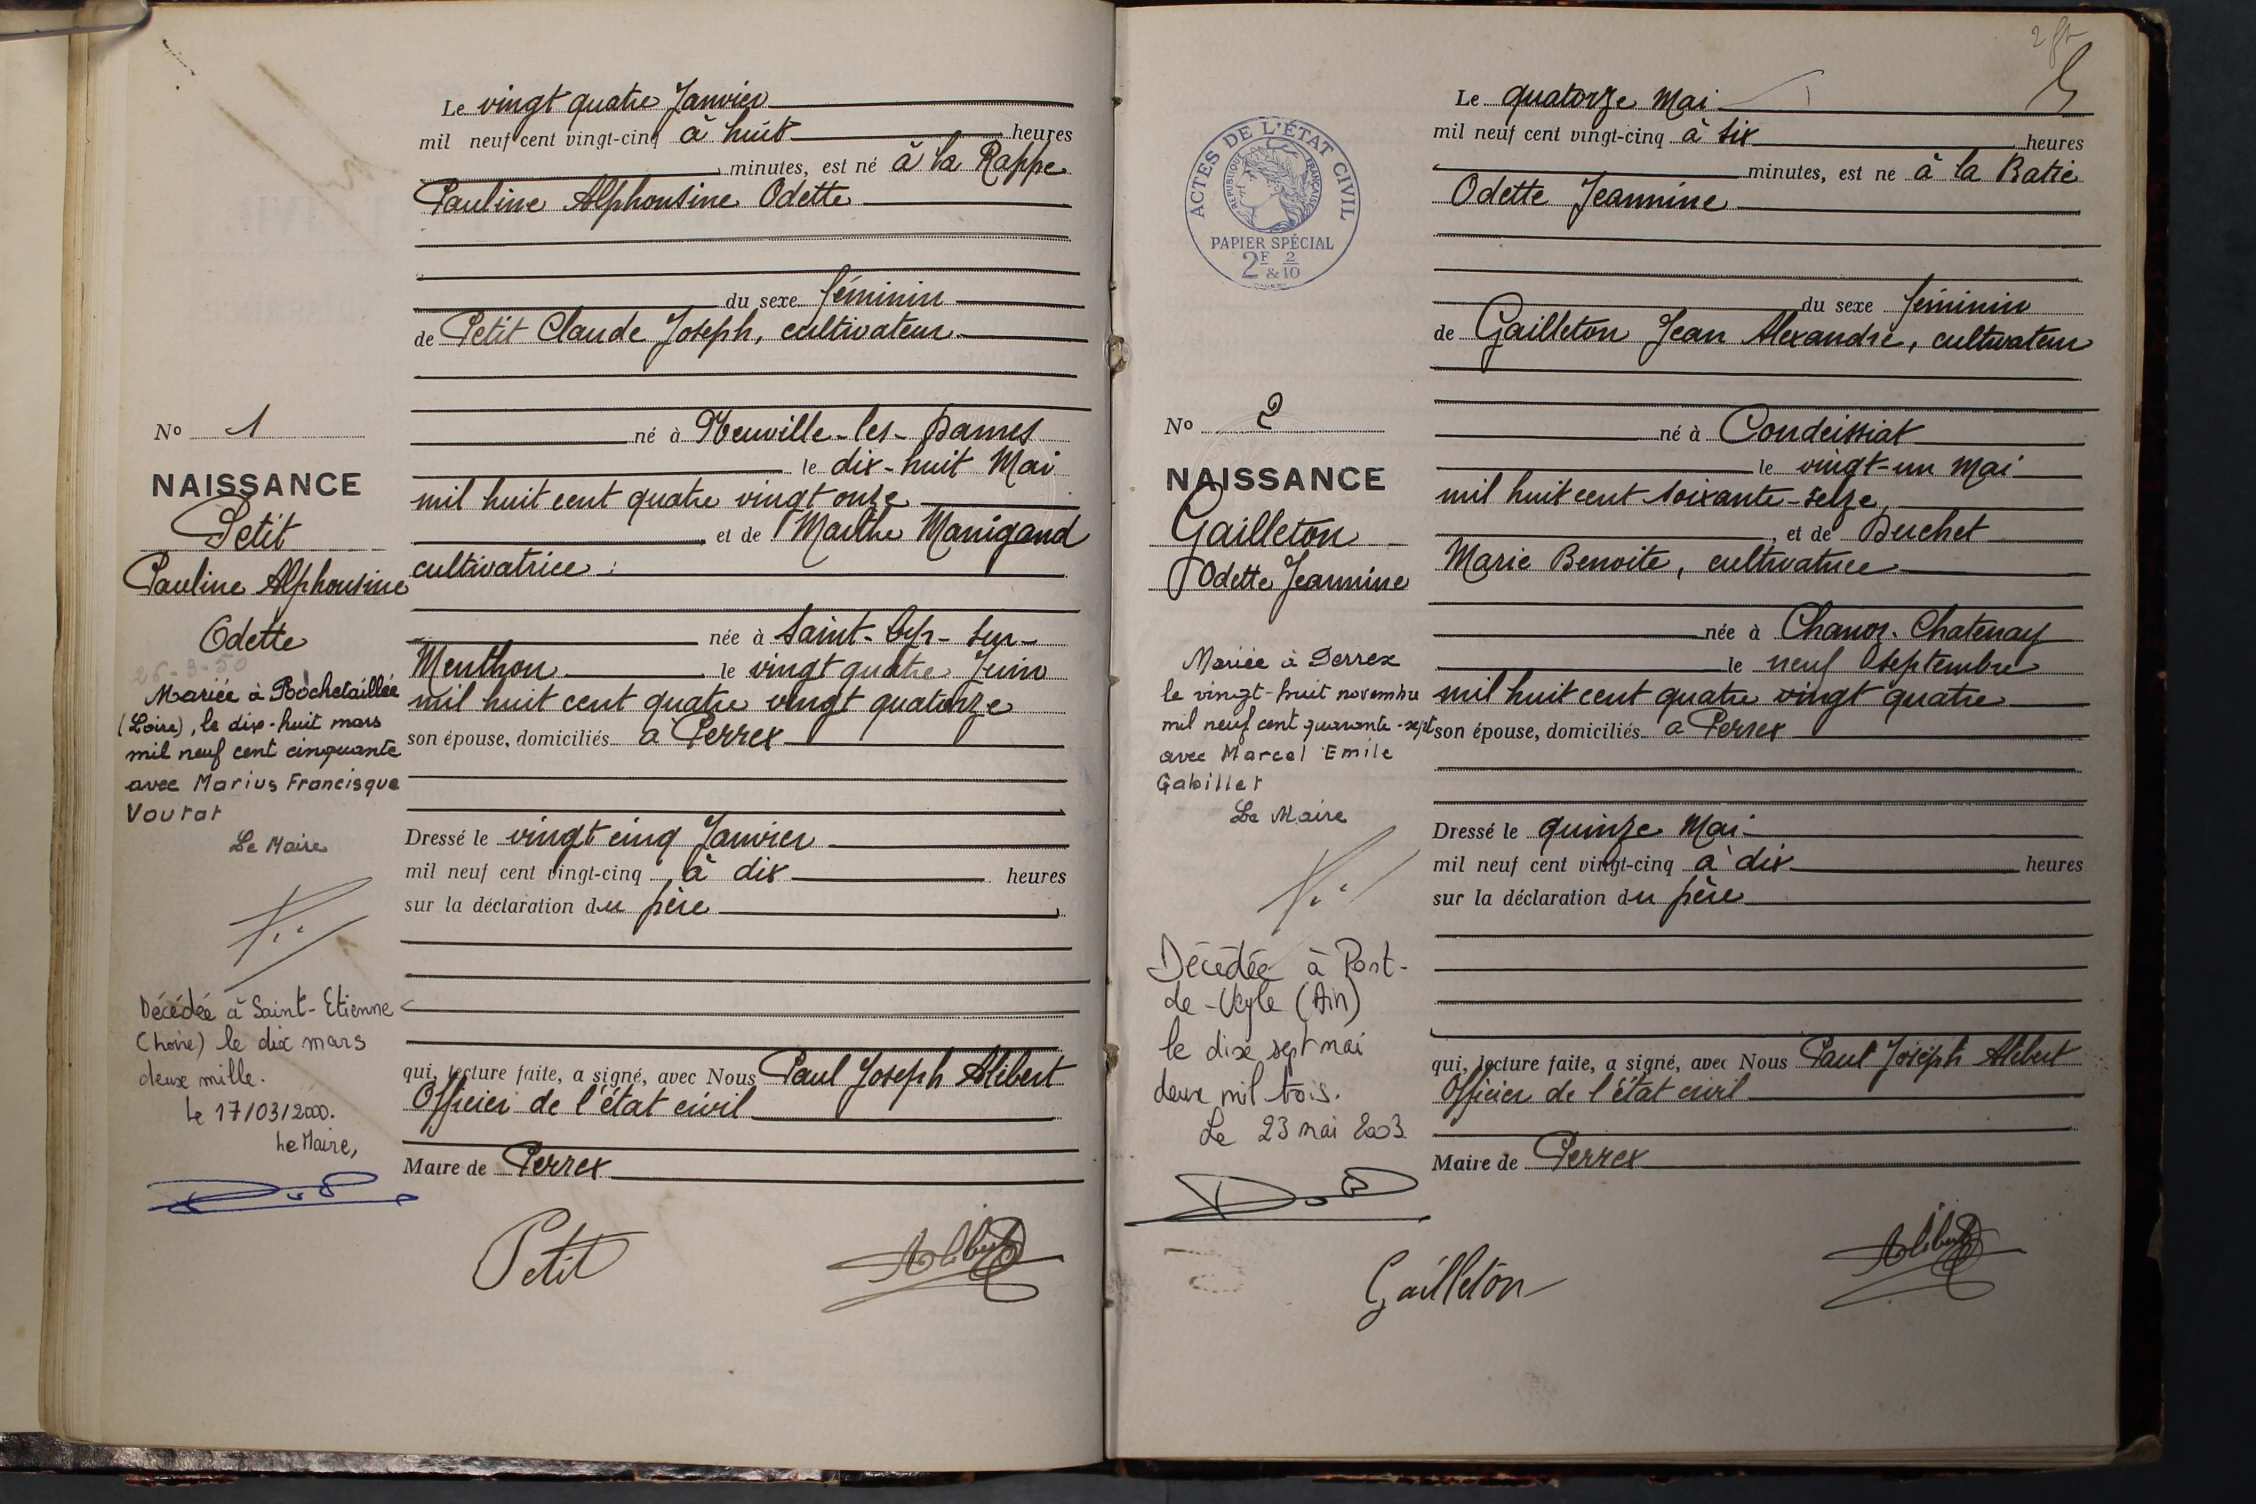 Le vingt quatre Janvier
mil neuf cent vingt-cinq à huit heures
minutes, est né à la Rappe
Pauline Alphonsine Odette
du sexe féminin
de Petit Claude Joseph, cultivateur
né à Neuville-les-Dames
le dix-huit Mai
mil huit cent quatre vingt onze
et de Marthe Manigand
cultivatrice
née à Saint-Cyr-sur-
Menthon le vingt quatre Juin
mil huit cent quatre vingt quatorze
son épouse, domiciliés à Perrex
Dressé le vingt cinq Janvier
mil neuf cent vingt-cinq, à dix heures
sur la déclaration du père
qui, lecture faite, a signé, avec Nous Paul Joseph Alibert
Officier de l'état civil
Maire de Perrex
Petit
Alibert
No 1
NAISSANCE
Petit
Pauline Alphonsine
Odette
26-3-50
Mariée à Rochetaillée
(Loire), le dix-huit mars
mil neuf cent cinquante
avec Marius Francisque
Voutat
Le Maire
Décédée à Saint-Etienne
(Loire) le dix mars
deux mille.
Le 17/03/2000.
Le Maire,
Le quatorze Mai
mil neuf cent vingt-cinq à six heures
minutes, est né à la Batie
Odette Jeannine
du sexe féminin
de Gailleton Jean Alexandre, cultivateur
né à Condeissiat
le vingt-un Mai
mil huit cent soixante-seize
, et de Duchet
Marie Benoite, cultivatrice
née à Chanoz-Chatenay
le neuf Septembre
mil huit cent quatre vingt quatre
son épouse, domiciliés à Perrex
Dressé le quinze Mai
mil neuf cent vingt-cinq à dix heures
sur la déclaration du père
qui, lecture faite, a signé, avec Nous Paul Joseph Alibert
Officier de l'état civil
Maire de Perrex
Gailleton
Alibert
ACTES DE L'ÉTAT CIVIL
RÉPUBLIQUE FRANÇAISE
PAPIER SPÉCIAL
2F & 2/10
No 2
NAISSANCE
Gailleton
Odette Jeannine
Mariée à Perrex
le vingt-huit novembre
mil neuf cent quarante-sept
avec Marcel Emile
Gabillet
Le Maire
Décédée à Pont-
de-Veyle (Ain)
le dix sept mai
deux mil trois.
Le 23 mai 2003